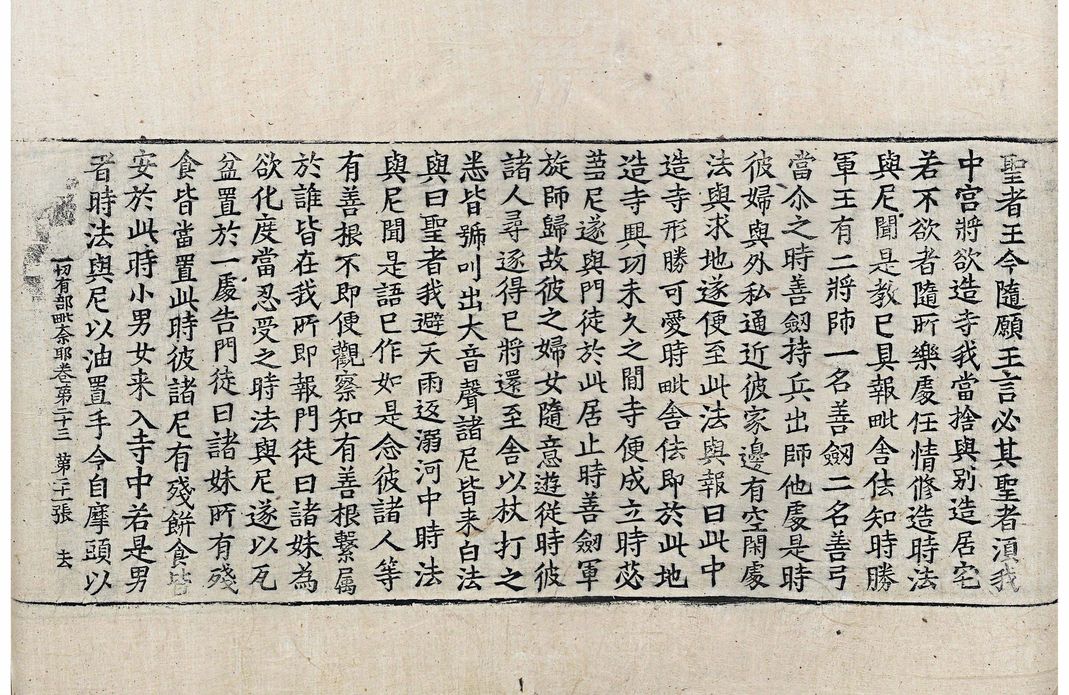 聖者王今隨願王言必其聖者湏我
中宮將欲造寺我當捨與别造居宅
若不欲者隨所樂處任情修造時法
與尼聞是教已具報毗舍佉知時勝
軍王有二將師一名善劒二名善弓
當尒之時善劒持兵出師他處是時
彼婦與外私通近彼家邊有空閑處
法與求地遂便至此法與報曰此中
造寺形勝可愛時毗舍佉即於此地
造寺興功未久之間寺便成立時苾
芻尼遂與門徒於此居止時善劒軍
旋師歸故彼之婦女隨意遊從時彼
諸人尋逐得已將還至舍以杖打之
悉皆號叫出大音聲諸尼皆来白法
與曰聖者我避天雨返溺河中時法
與尼聞是語已作如是念彼諸人等
有善根不即便觀察知有善根繫属
於誰皆在我所即報門徒曰諸妹為
欲化度當忍受之時法與尼遂以瓦
盆置於一處告門徒曰諸妹所有殘
食皆當置此時彼諸尼有殘餅食皆
安於此時小男女来入寺中若是男
者時法與尼以油置手令自摩頭以
一切有部毗奈耶卷第二十三 第二十一張 去